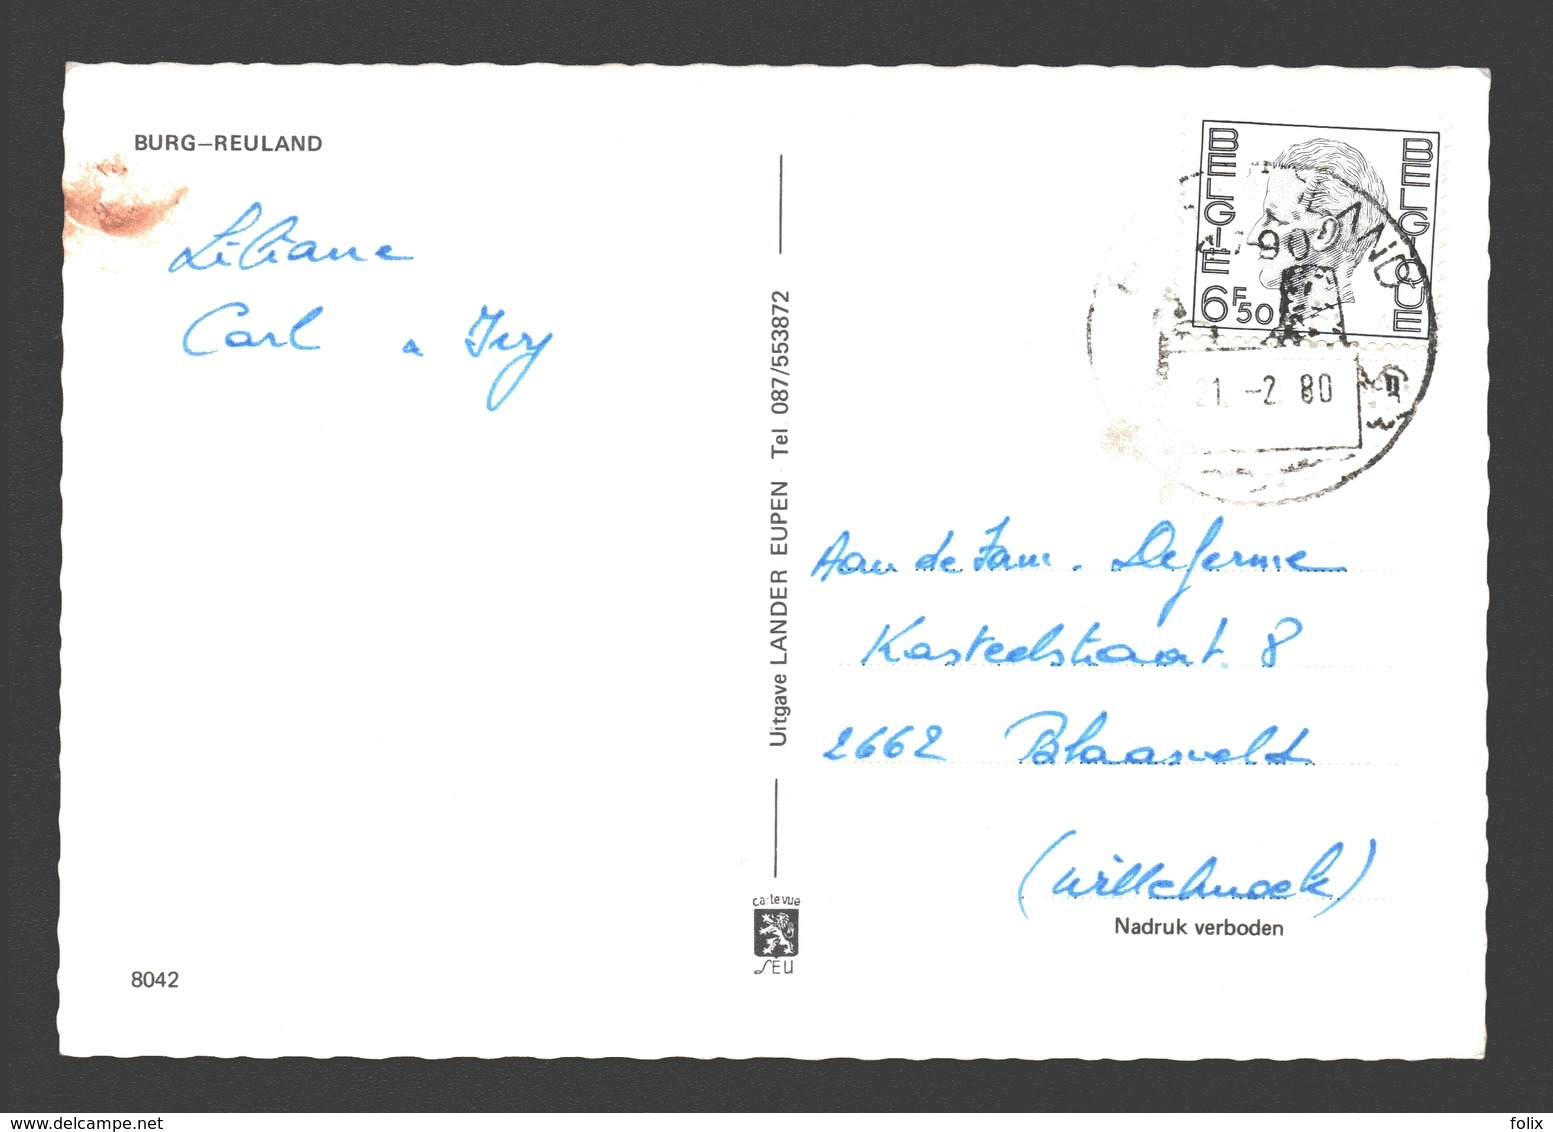 BURG—REULAND
Liliane
Carl & Ivy
8042
Uitgave LANDER EUPEN Tel 087/553872
carte vue
LEU
BELGIE
BELGIQUE
6F50
LAND
90
21. -2. 80
Aan de Fam. Deferme
Kasteelstraat. 8
2662 Blaasveld
(Willebroek)
Nadruk verboden
www.delcampe.net
folix